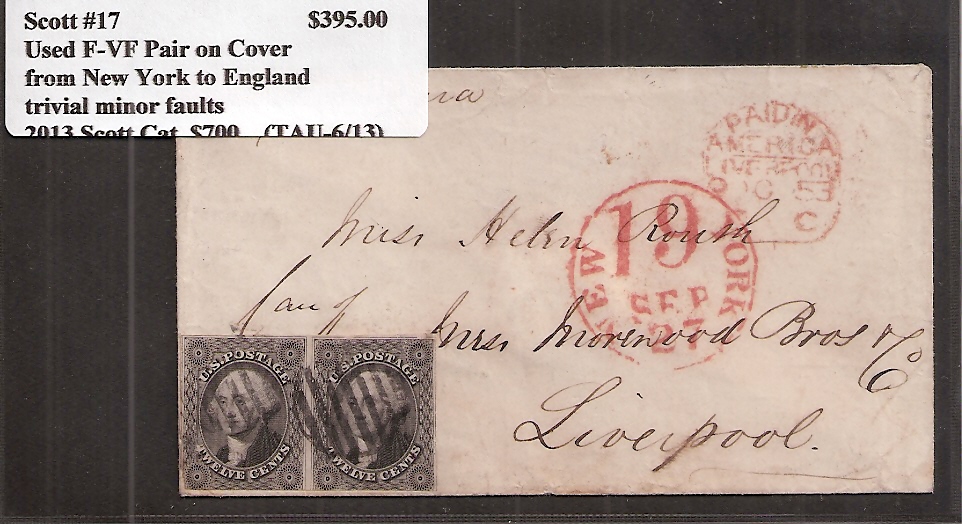 Scott #17 $395.00
Used F-VF Pair on Cover
from New York to England
trivial minor faults
2013 Scott Cat. $700 (TAU-6/13)
PAID IN
AMERICA
LIVERPOOL
53
C
Miss Helen
19
NEW YORK
SEP
27
Morewood Bros & Co
Liverpool.
U.S. POSTAGE U.S. POSTAGE
TWELVE CENTS TWELVE CENTS